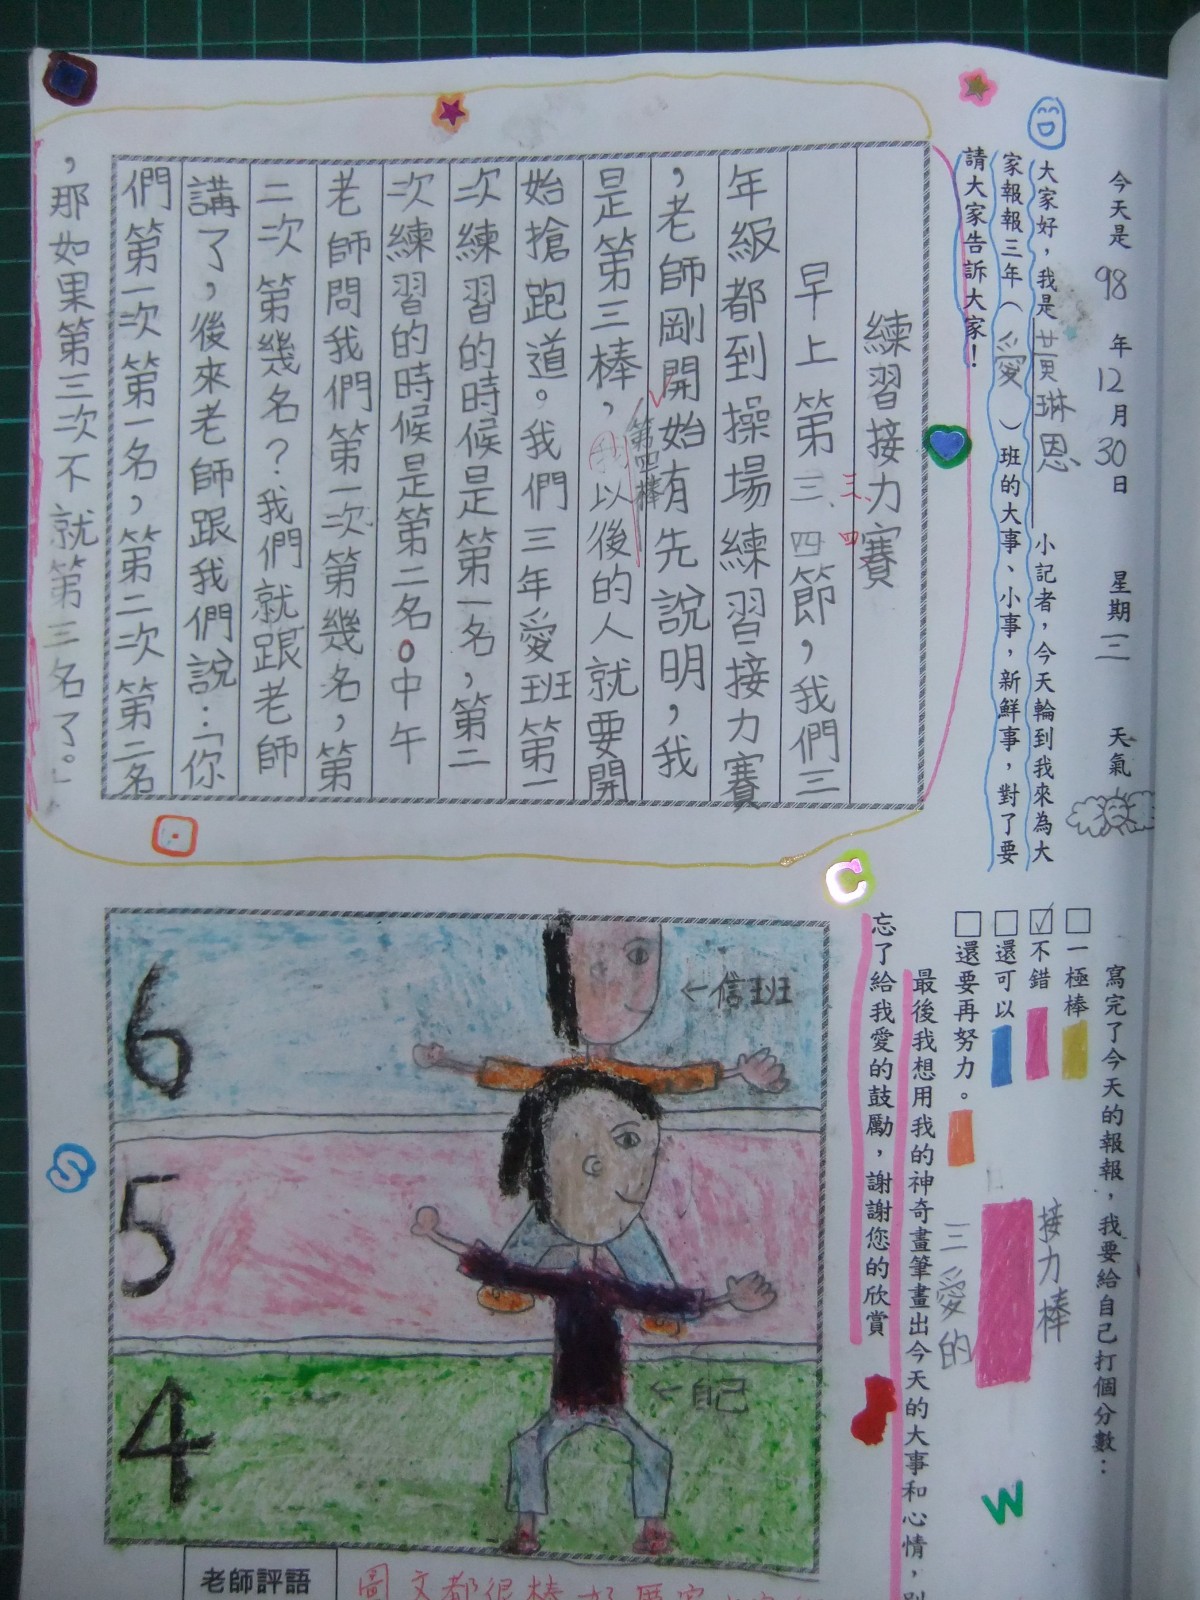 今天是98年12月30日 星期三 天氣
大家好，我是黃琳恩小記者，今天輪到我來為大
家報報三年（愛）班的大事、小事，新鮮事，對了要
請大家告訴大家！
練習接力賽
早上第三、四節，我們三
三、四
年級都到操場練習接力賽
，老師剛開始有先說明，我
第四棒
是第三棒，我以後的人就要開
始搶跑道。我們三年愛班第一
次練習的時候是第一名，第二
次練習的時候是第二名。中午
老師問我們第一次第幾名，第
二次第幾名？我們就跟老師
講了，後來老師跟我們說：「你
們第一次第一名，第二次第二名
，那如果第三次不就第三名了。」
寫完了今天的報報，我要給自己打個分數：
□一極棒
☑不錯
□還可以
□還要再努力。
接力棒
三愛的
最後我想用我的神奇畫筆畫出今天的大事和心情，別
忘了給我愛的鼓勵，謝謝您的欣賞
C
S
W
6
5
4
←信班
←自己
老師評語
圖文都很棒